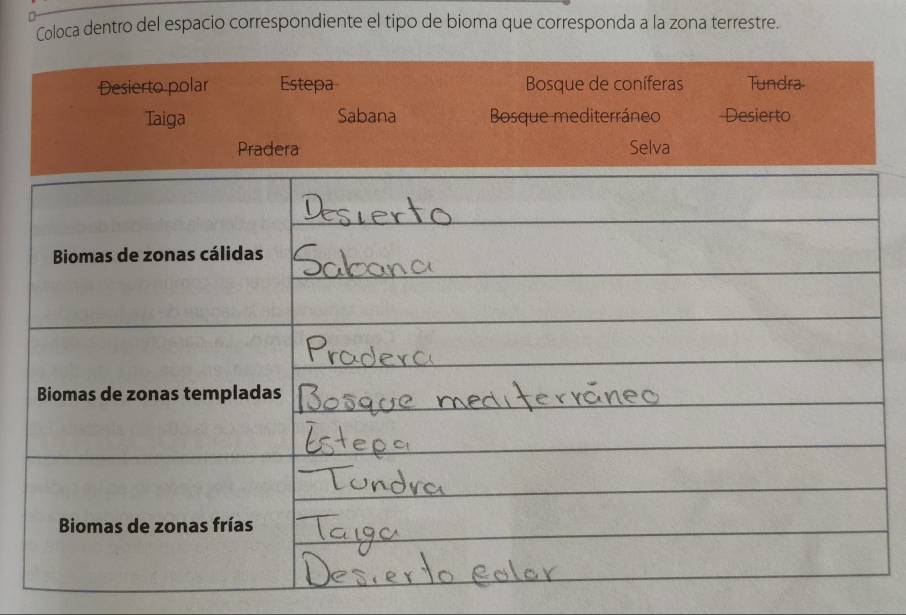 Coloca dentro del espacio correspondiente el tipo de bioma que corresponda a la zona terrestre.
Desierto polar Estepa Bosque de coníferas Tundra
Taiga Sabana Bosque mediterráneo Desierto
Pradera Selva
Desierto
Biomas de zonas cálidas
Sabana
Pradera
Biomas de zonas templadas
Bosque mediterráneo
Estepa
Tundra
Biomas de zonas frías
Taiga
Desierto eolar